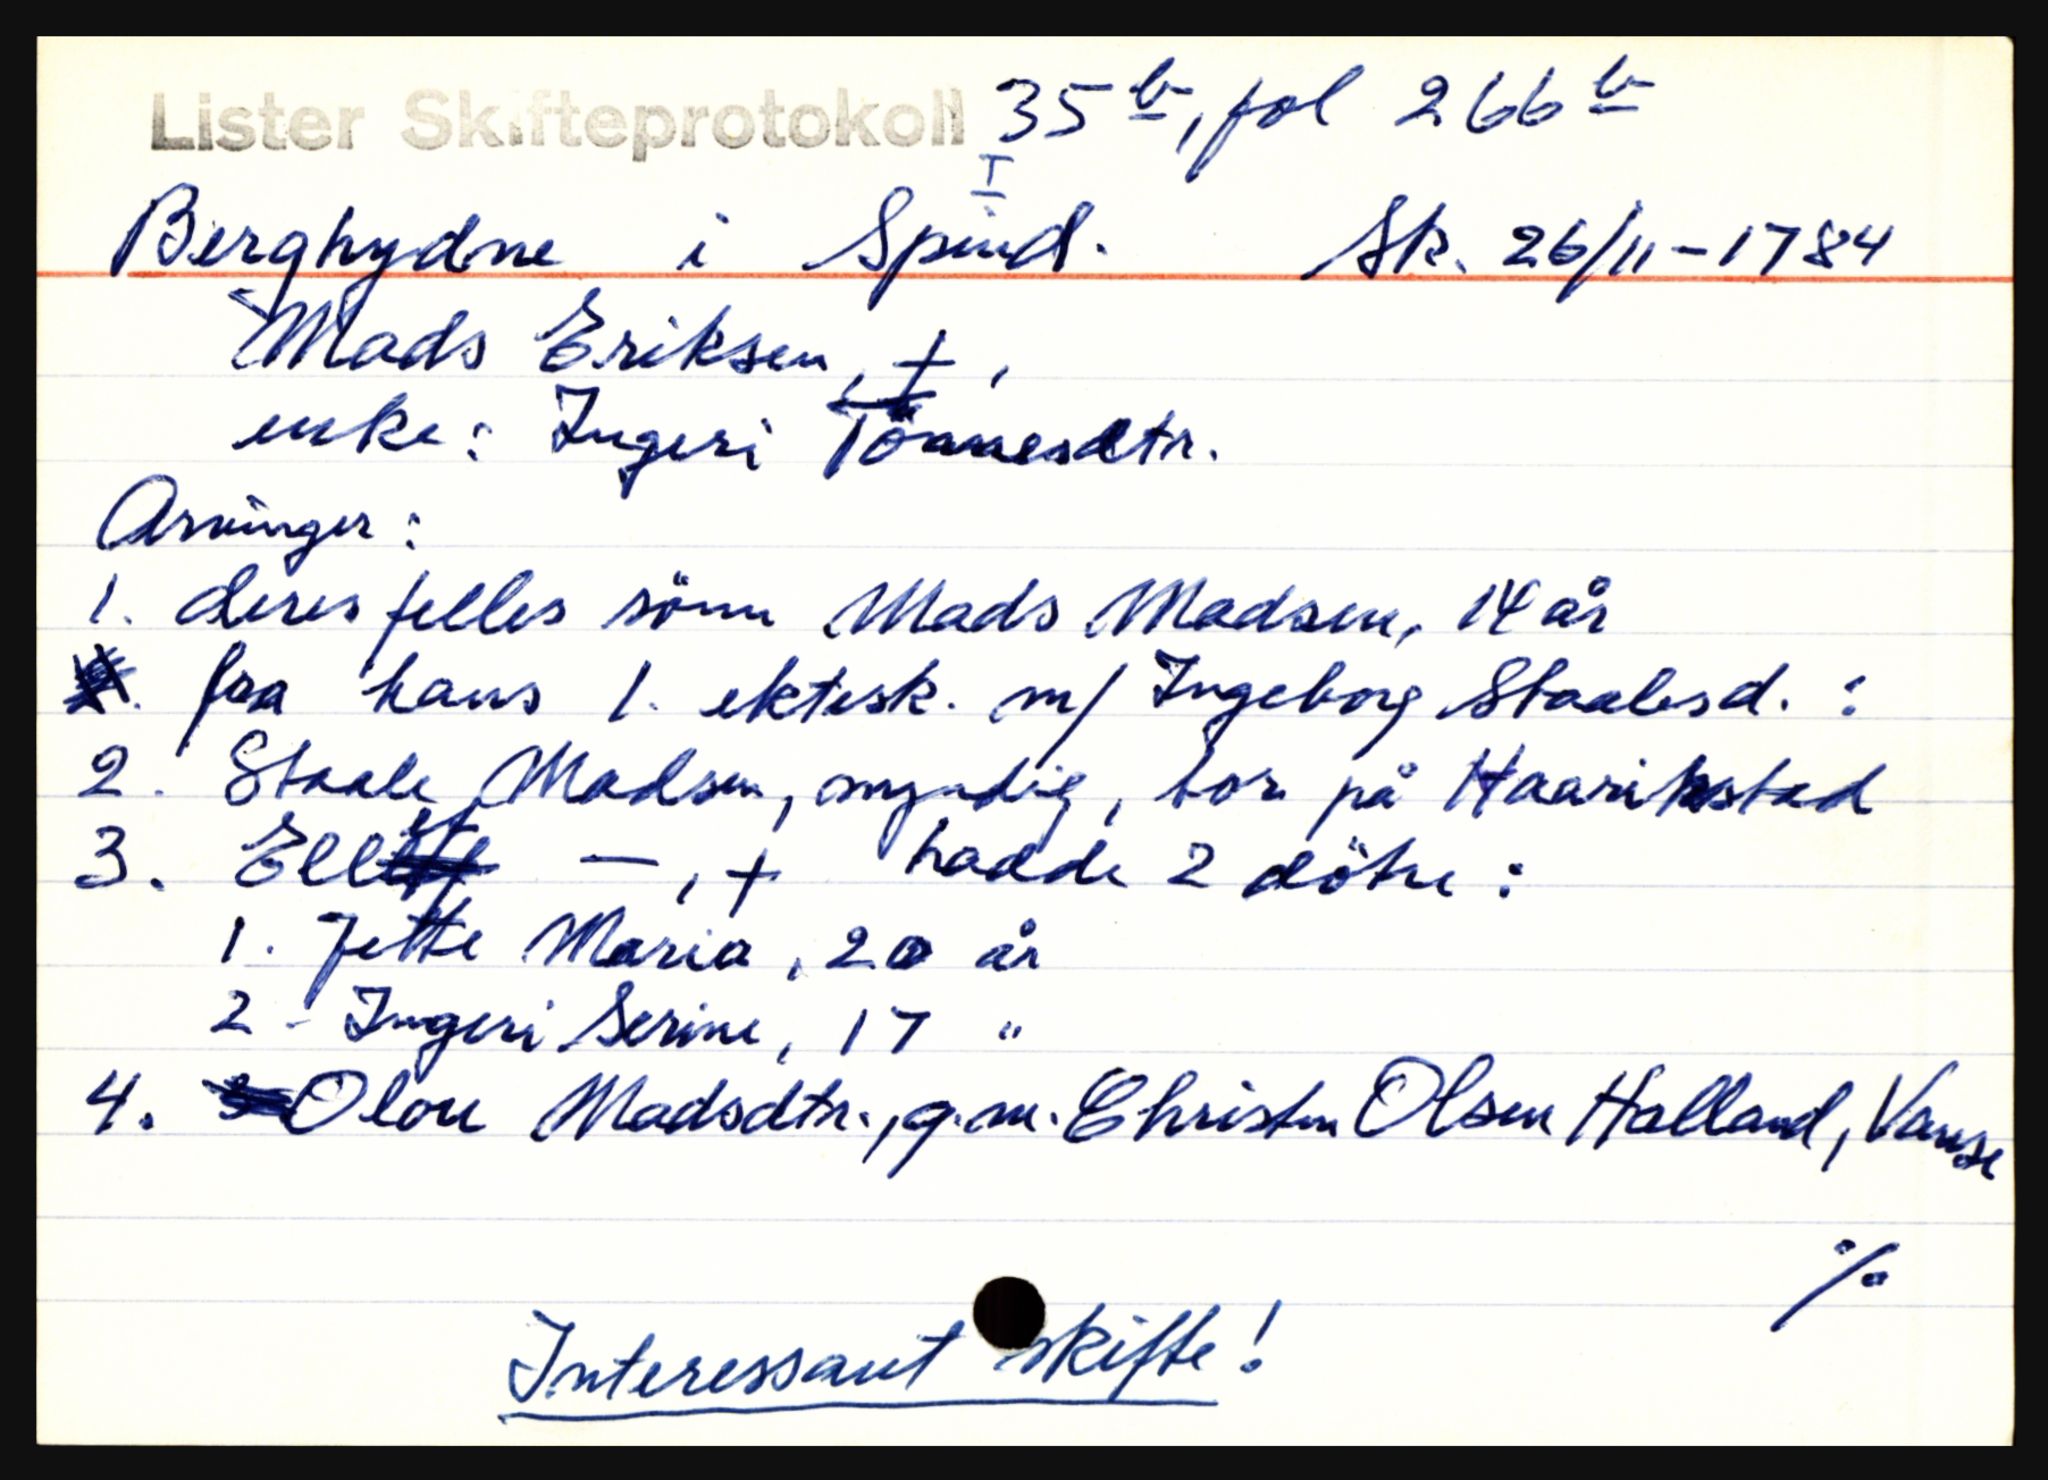 Lister Skifteprotokoll 35 b, fol 266 b
I
Berghydne i Spind. Sk. 26/11-1784
Mads Eriksen, +,
enke: Ingeri Tönnesdtr.
Arvinger:
1. deres felles sönn Mads Madsen, 14 år
fra hans 1. ektesk. m/ Ingeborg Staalesd. :
2. Staale Madsen, myndig, bor på Haarikstad
3. Ellef —, + hadde 2 dötre :
1. Jette Maria, 20 år
2 - Ingeri Serine, 17 "
4. Olou Madsdtr., g.m. Christen Olsen Halland, Vanse
%
Interessant skifte!